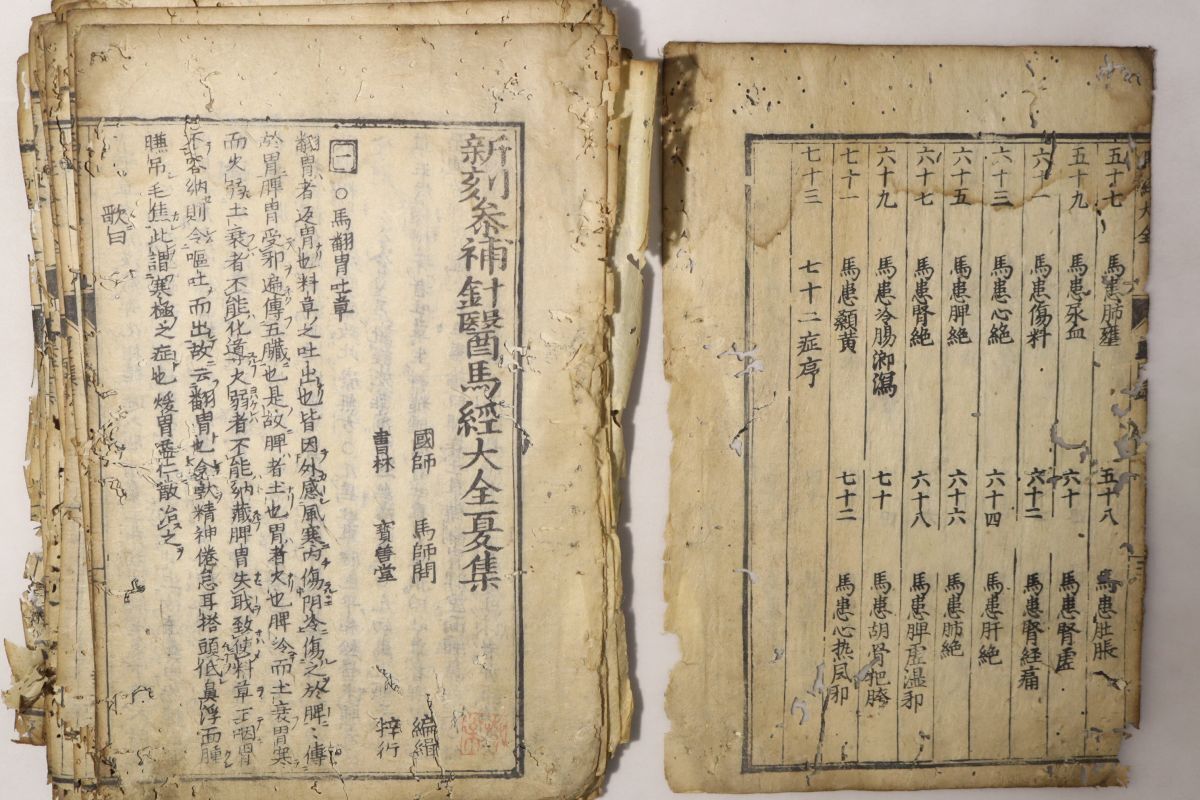 五十七 馬患肺壅 五十八 馬患肚脹
五十九 馬患尿血 六十 馬患腎虛
六十一 馬患傷料 六十二 馬患腎経痛
六十三 馬患心絶 六十四 馬患肝絶
六十五 馬患脾絶 六十六 馬患肺絶
六十七 馬患腎絶 六十八 馬患脾虛濕邪
六十九 馬患冷腸泖瀉 七十 馬患胡骨把胯
七十一 馬患顙黄 七十二 馬患心热風邪
七十三 七十二症序
新刻叅補針醫馬經大全夏集
國師 馬師問 編緝
書林 寳善堂 梓行
一 ○馬翻胃吐草
翻胃者返胃也料草之吐出也皆因外感風寒内傷阴冷傷之於脾〻傳
於胃脾胃受邪遍傳五臓也是故脾者土也胃者火也脾冷而土衰胃寒
而火弱土衰者不能化導火弱者不能納藏脾胃失职致使料草至咽胃
不容納則令嘔吐而出故云翻胃也令獣精神倦怠耳搭頭低鼻浮面腫
膁吊毛焦此謂寒極之症也煖胃益仁散治之
歌曰